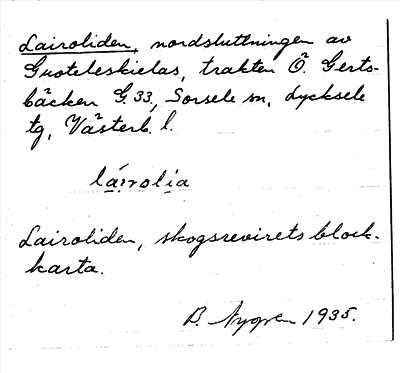 Lairoliden, nordsluttningen av
Guoteleskielas, trakten Ö. Gerts-
bäcken G. 33, Sorsele sn, Lycksele
tg, Västerb. l.
láirolia
Lairoliden, skogsrevirets block-
karta.
B. Nygren 1935.